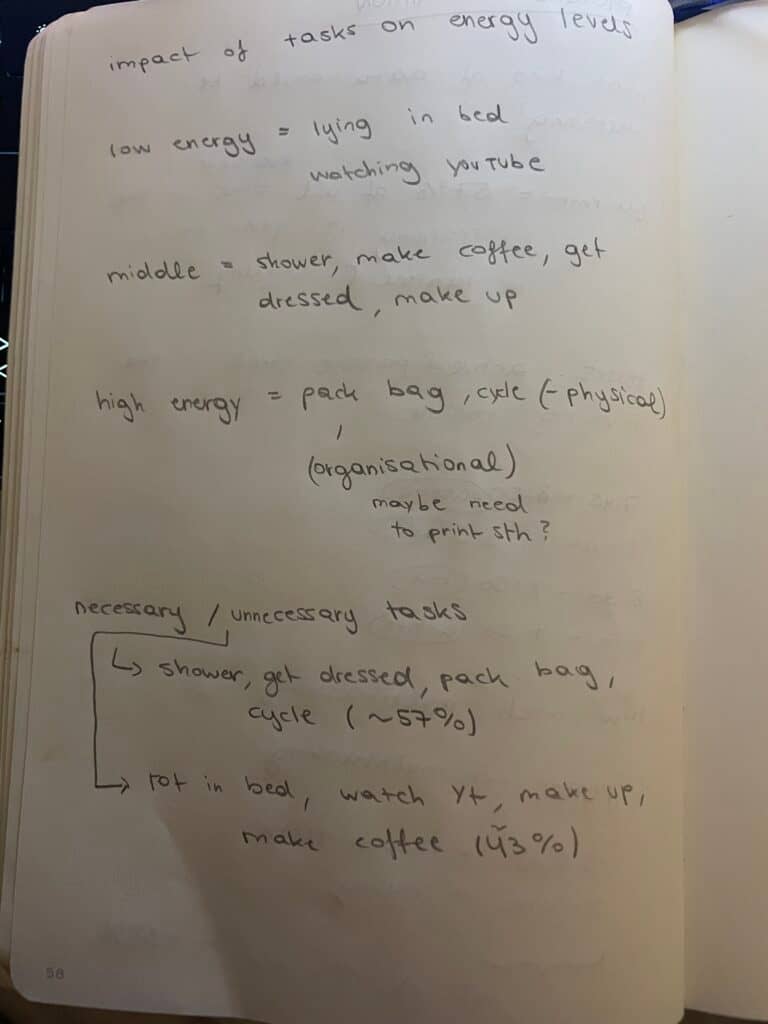 impact of tasks on energy levels
low energy = lying in bed
watching YouTube
middle = shower, make coffee, get
dressed, make up
high energy = pack bag, cycle (- physical)
(organisational)
maybe need
to print sth?
necessary / unnecessary tasks
↳ shower, get dressed, pack bag,
cycle (~57%)
→ rot in bed, watch yt, make up,
make coffee (~43%)
58